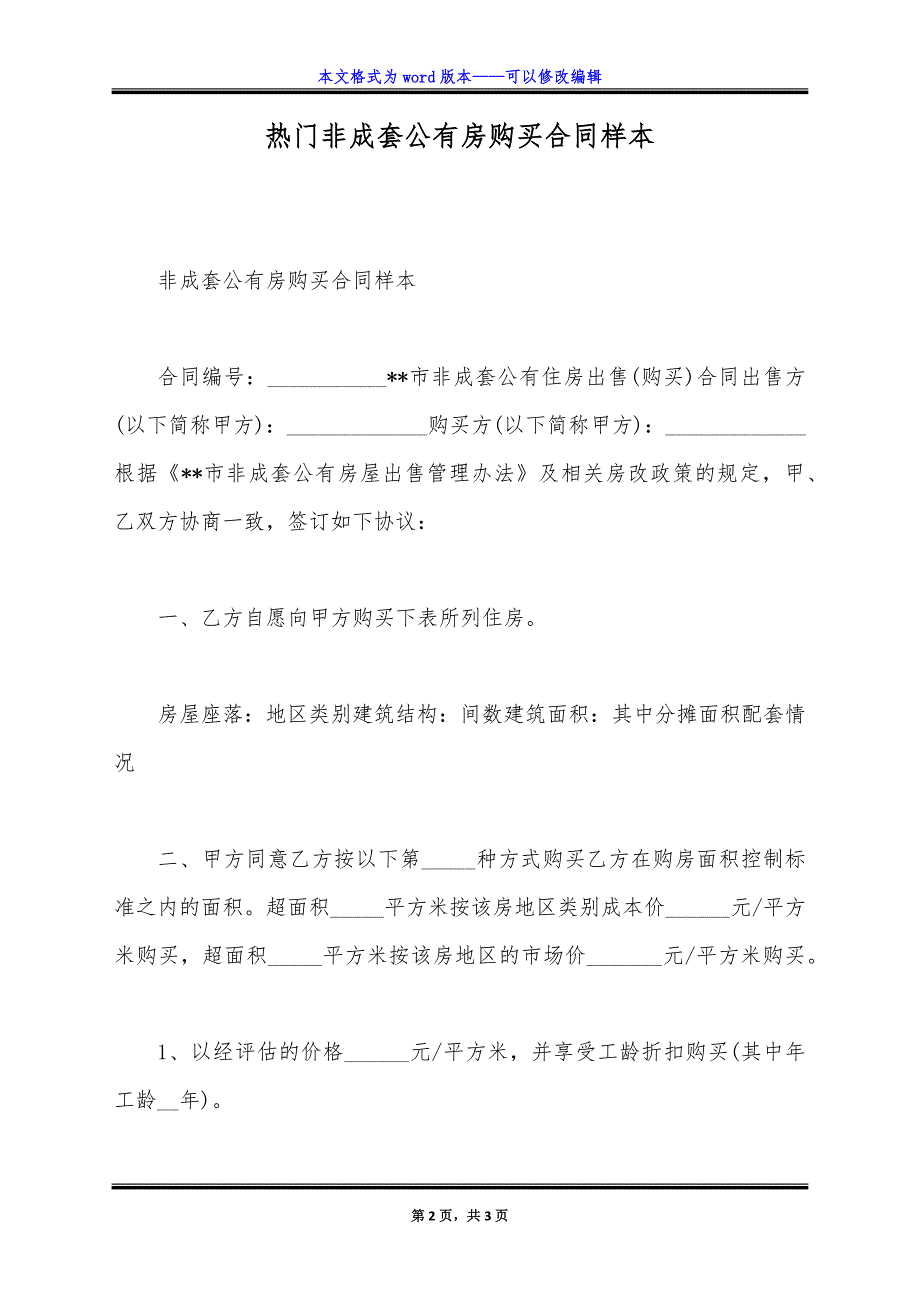 本文格式为 word 版本——可以修改编辑
热门非成套公有房购买合同样本
非成套公有房购买合同样本
合同编号：___________**市非成套公有住房出售(购买)合同出售方
(以下简称甲方)：_____________购买方(以下简称甲方)：_____________
根据《**市非成套公有房屋出售管理办法》及相关房改政策的规定，甲、
乙双方协商一致，签订如下协议：
一、乙方自愿向甲方购买下表所列住房。
房屋座落：地区类别建筑结构：间数建筑面积：其中分摊面积配套情
况
二、甲方同意乙方按以下第_____种方式购买乙方在购房面积控制标
准之内的面积。超面积_____平方米按该房地区类别成本价______元/平方
米购买，超面积_____平方米按该房地区的市场价_______元/平方米购买。
1、以经评估的价格______元/平方米，并享受工龄折扣购买(其中年
工龄__年)。
第 2 页，共 3 页